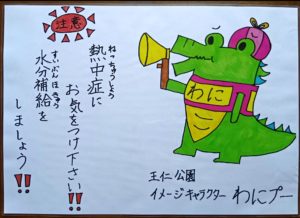 注意
熱中症に
ねっちゅうしょう
お気をつけ下さい!!
水分補給を
すいぶんほきゅう
しましょう!!
わに
王仁公園
イメージキャラクター わにプー